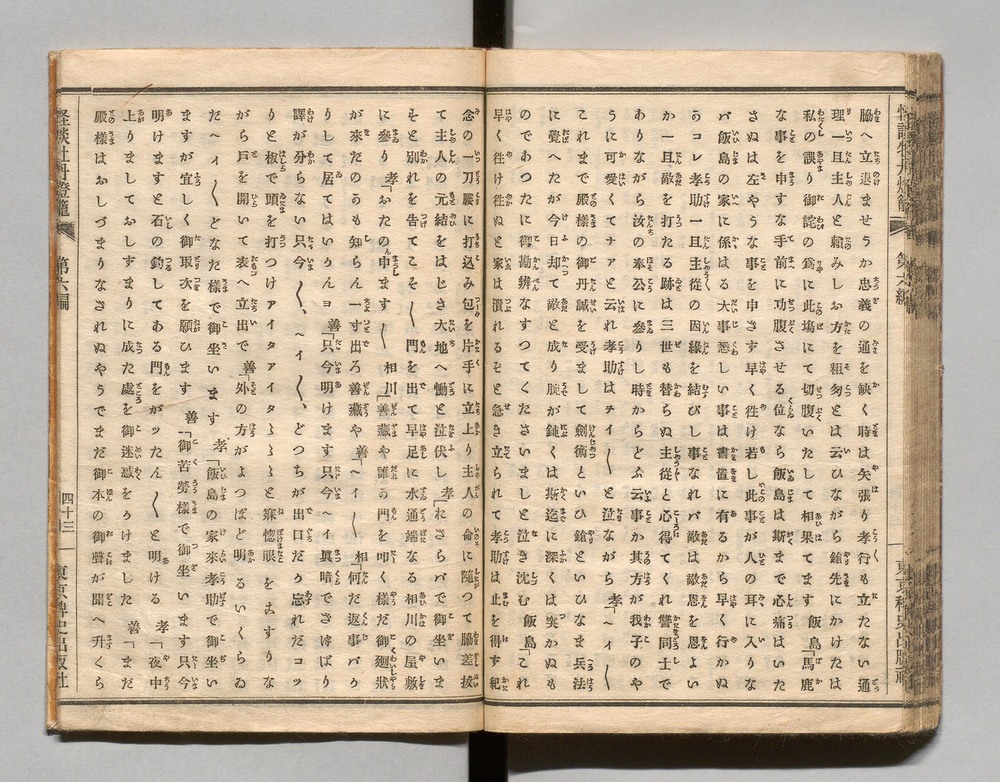 脇へ立退ませうか忠義の道を欠く時は矢張り孝行も立たない道
理一旦主人と頼みしお方を粗匆とは云ひながら鎗先にかけたは
私の誤り御詫の為に此場にて切腹いたして相果てます 飯島「馬鹿
な事を申すな手前に切腹させる位なら飯島は斯まで心痛はいた
さぬは左やうな事を申さず早く往け若し此事が人の耳に入りな
バ飯島の家に係はる大事悉しい事は書置に有るから早く行かぬ
か一旦敵を打たる跡は三世も替らぬ主従と心得てくれ讐同士で
ありながら汝の奉公に参りし時からどふ云事か其方が我子のや
うに可愛くてナアと云れ孝助はヲイ〱と泣ながら 孝「ヘイ〱
これまで殿様の御丹誠を受まして剣術といひ鎗といひなま兵法
に覚へたが今日却て敵と成り腕が鈍けば斯迄に深くは突かぬも
のであつたに御勘辨なすつてくださいましと泣き沈む 飯島「これ
早く往け往ぬと家は潰れるぞと急き立られて孝助は止を得ず紀
念の一刀腰に打込み包を片手に立上り主人の命に随つて脇差抜
て主人の元結をはじき大地へ慟と泣伏し 孝「れさらバで御坐いま
そと別れを告てこそ〱門を出て早足に水道端なる相川の屋敷
に参り 孝「おたのん申ます〱 相川「善蔵や誰か門を叩く様だ御廻状
が来だのかも知らん一寸出ろ善蔵や 善「ヘイ〱 相「何だ返事バか
りして居てはいかんヨ 善「只今明けます只今ヘイ真暗でさつぱり
譯が分らない只今〱、ヘイ〱、どつちが出口だか忘れだコッ
りと柀で頭を打つけアイタアイタヽヽヽと寐惚眼をこすりな
がら戸を開いて表へ立出で 善「外の方がよつぱど明るいくらゐ
だヘイ〱どなた様で御坐います 孝「飯島の家來孝助で御坐い
ますが宜しく御取次を願ひます 善「御苦労様で御坐います只今
明けますと石の釣してある門をがッたん〱と明ける 孝「夜中
上りましておしずまりに成た處を御迷惑をかけました 善「まだ
殿様はおしづまりなされぬやうでまだ御本の御聲が聞へ升くら
怪談牡丹燈籠 第六編 四十三 東京稗史出版社